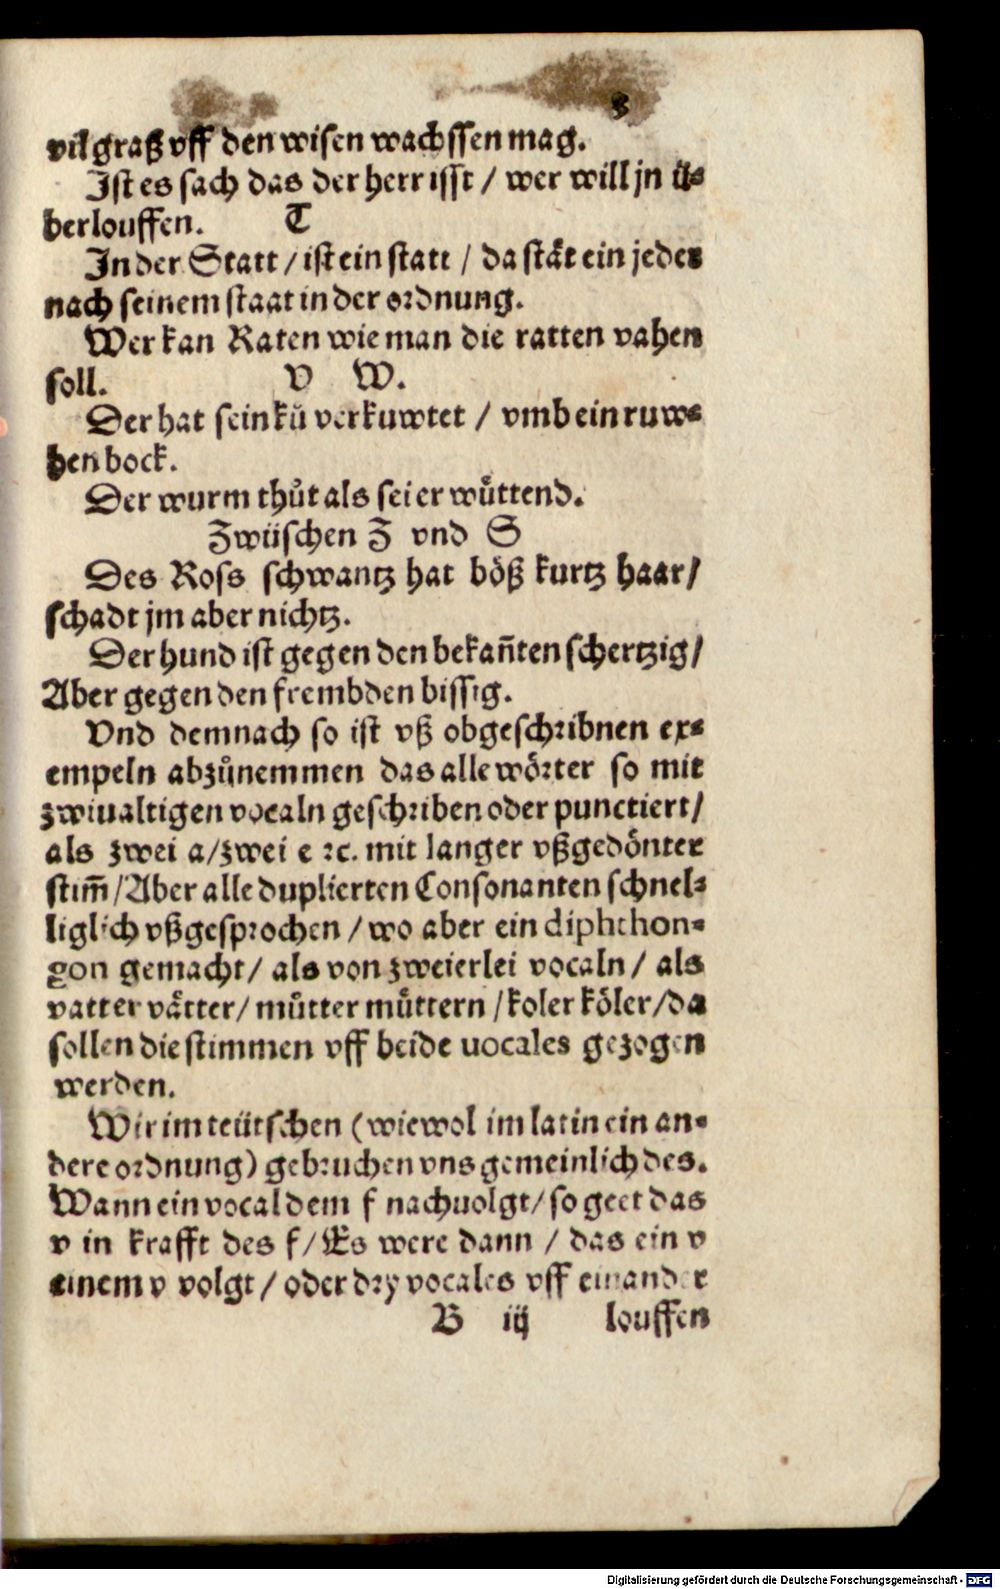 vil graß vff den wisen wachssen mag.
Ist es sach das der herr isst / wer will jn ü⸗
berlouffen. T
In der Statt / ist ein statt / da stät ein jeder
nach seinem staat in der ordnung.
Wer kan Raten wie man die ratten vahen
soll. V W.
Der hat sein kü verkuwtet / vmb ein ruw⸗
hen bock.
Der wurm thůt als sei er wüttend.
Zwüschen Z vnd S
Des Ross schwantz hat böß kurtz haar/
schadt jm aber nichtz.
Der hund ist gegen den bekañten schertzig/
Aber gegen den frembden bissig.
Vnd demnach so ist vß obgeschribnen ex⸗
empeln abzůnemmen das alle wörter so mit
zwiualtigen vocaln geschriben oder punctiert/
als zwei a/zwei e ꝛc. mit langer vßgedönter
stim̃ /Aber alle duplierten Consonanten schnel⸗
liglich vßgesprochen / wo aber ein diphthon⸗
gon gemacht/ als von zweierlei vocaln / als
vatter vätter/ můtter müttern /koler köler/da
sollen die stimmen vff beide uocales gezogen
werden.
Wir im teütschen (wiewol im latin ein an⸗
dere ordnung) gebruchen vns gemeinlich des.
Wann ein vocal dem f nachuolgt/ so geet das
v in krafft des f/ Es were dann / das ein v
einem v volgt / oder dry vocales vff einander
B iij louffen
Digitalisierung gefördert durch die Deutsche Forschungsgemeinschaft - DFG